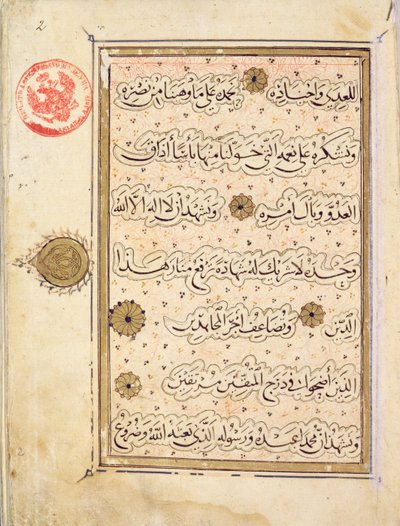 2
نحمده على ما وهبنا من نصره
ونشكره على نعمه التي خولنا منها بأسا أذاق
العدو وبال أمره ونشهد أن لا اله الا الله
وحده لا شريك له شهادة ترفع منار هذا
الدين وتضاعف أجر المجاهدين
الذين أضحوا في درج المتقين مرتقين
ونشهد أن محمدا عبده ورسوله الذي بعثه الله وضروع